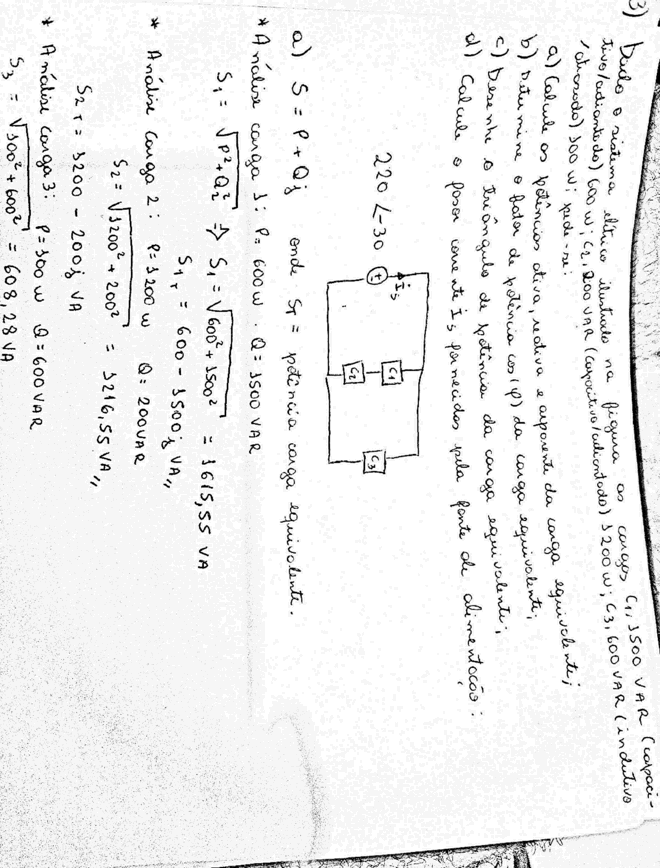 3) Dado o sistema elétrico ilustrado na figura as cargas C1, 1500 VAR (capaci-
tivo/adiantado) 600 W; C2, 200 VAR (capacitivo/adiantado) 1200 W; C3, 600 VAR (indutivo
/atrasado) 100 W; pede-se:
a) Calcule as potências ativa, reativa e aparente da carga equivalente;
b) Determine o fator de potência cos(φ) da carga equivalente;
c) Desenhe o triângulo de potência da carga equivalente;
d) Calcule o fasor corrente Is fornecidos pela fonte de alimentação:
220 ∠-30
Is
C1
C2
C3
a) S = P + Qj onde ST = potência carga equivalente.
* Análise carga 1: P= 600 W . Q= 1500 VAR
S1 = √P² + Q² ⇒ S1 = √600² + 1500² = 1615,55 VA
S1T = 600 - 1500j VA,,
* Análise Carga 2: P= 1200 W Q= 200 VAR
S2 = √1200² + 200² = 1216,55 VA,,
S2T = 1200 - 200j VA
* Análise carga 3: P= 100 W Q= 600 VAR
S3 = √100² + 600² = 608,28 VA